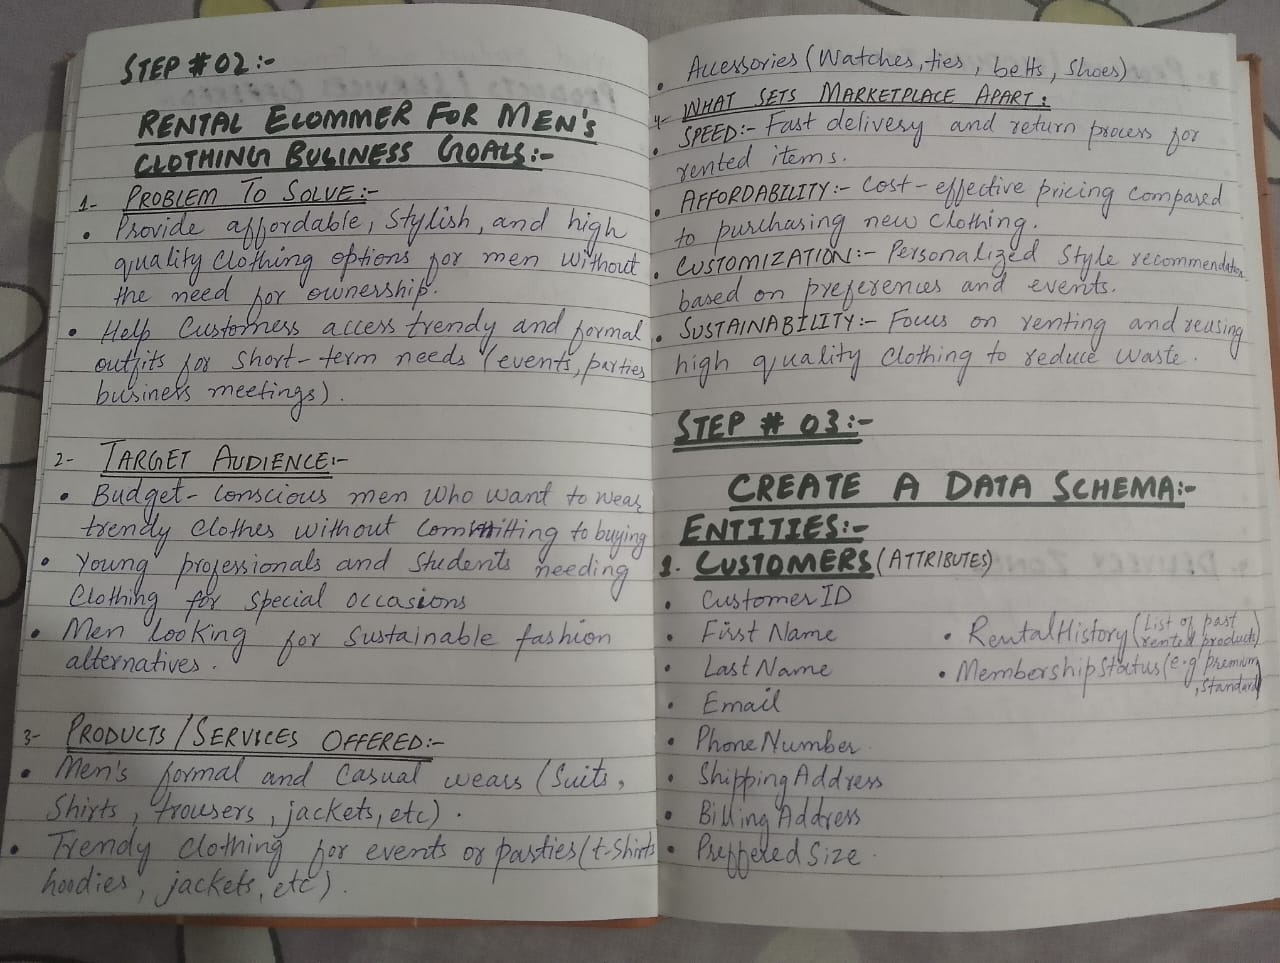 STEP #02:-
RENTAL ECOMMER FOR MEN's
CLOTHING BUSINESS GOALS:-
1- PROBLEM TO SOLVE:-
• Provide affordable, stylish, and high
quality clothing options for men without
the need for ownership.
• Help Customers access trendy and formal
outfits for short-term needs (events, parties
business meetings).
2- TARGET AUDIENCE:-
• Budget-conscious men who want to wear
trendy clothes without committing to buying
• Young professionals and students needing
Clothing for special occasions
• Men looking for sustainable fashion
alternatives.
3- PRODUCTS/SERVICES OFFERED:-
• Men's formal and casual wears (Suits,
Shirts, trousers, jackets, etc).
• Trendy clothing for events or parties (t-shirts
hoodies, jackets, etc).
• Accessories (Watches, ties, belts, shoes)
4- WHAT SETS MARKETPLACE APART:
• SPEED:- Fast delivery and return process for
rented items.
• AFFORDABILITY:- Cost-effective pricing compared
to purchasing new clothing.
• CUSTOMIZATION:- Personalized style recommendation
based on preferences and events.
• SUSTAINABILITY:- Focus on renting and reusing
high quality clothing to reduce waste.
STEP # 03:-
CREATE A DATA SCHEMA:-
ENTITIES:-
1. CUSTOMERS (ATTRIBUTES)
• CustomerID
• First Name
• Last Name
• Email
• PhoneNumber
• ShippingAddress
• BillingAddress
• Preffered Size
• RentalHistory (List of past
rented products)
• MembershipStatus (e.g premium
, Standard)